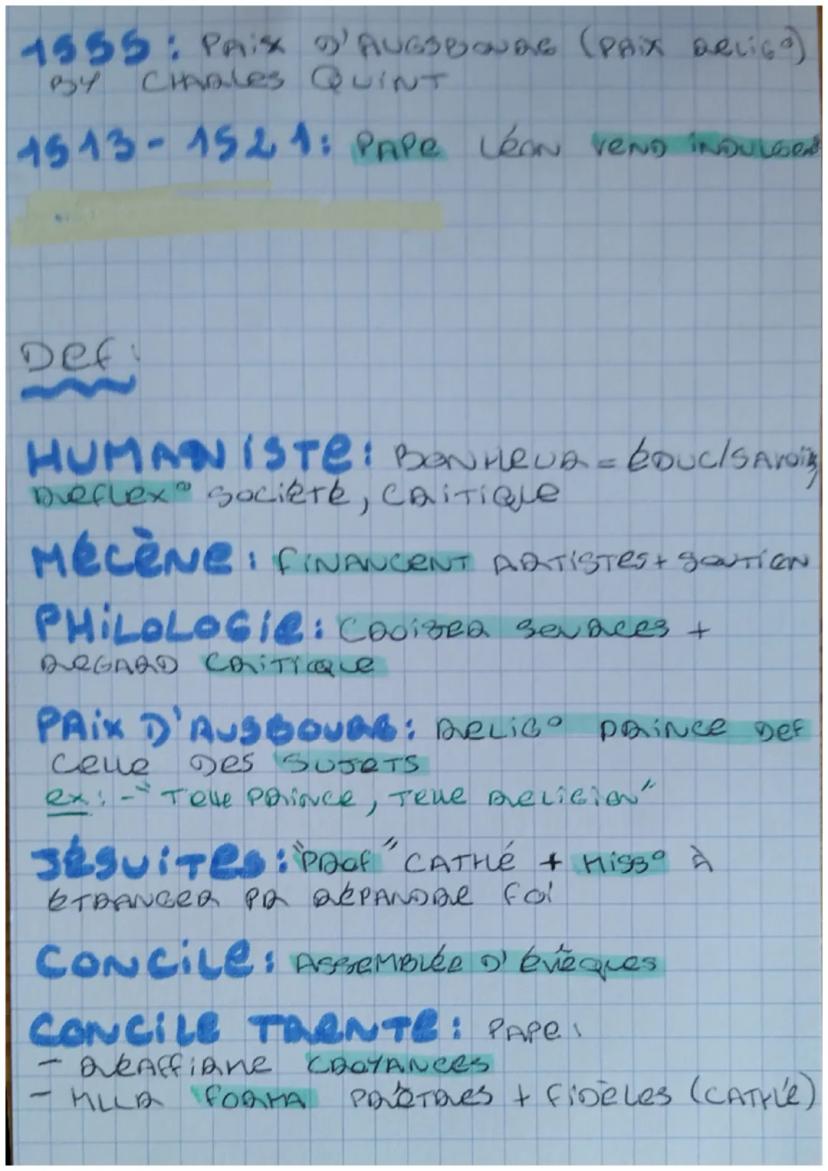 1555: PAIX D'AUGSBOURG (PAIX RELIG°)
BY CHARLES QUINT
1513-1521: PAPE LÉON VEND INDULGEN
DEF:
HUMANISTE: BONHEUR = ÉDUC/SAVOIR,
REFLEX° SOCIÉTÉ, CRITIQUE
MÉCÈNE: FINANCENT ARTISTES + SOUTIEN
PHILOLOGIE: CROISER SOURCES +
REGARD CRITIQUE
PAIX D'AUSBOURG: RELIG° PRINCE DEF
CELLE DES SUJETS
ex: -"TELLE PRINCE, TELLE RELIGION"
JÉSUITES: "PROF" CATHÉ + MISS° À
ÉTRANGER PR RÉPANDRE FOI
CONCILE: ASSEMBLÉE D'ÉVÊQUES
CONCILE TRENTE: PAPE:
- RÉAFFIRME CROYANCES
- MLLR FORMA PRÊTRES + FIDÈLES (CATHÉ)